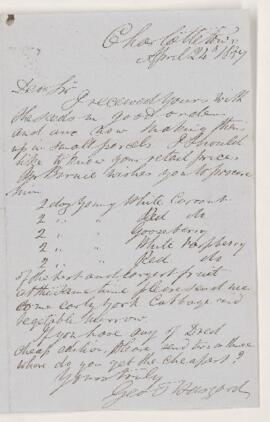 Charlottetown
April 24th 1857
Dear Sir
I received yours with
the seeds in good order
and am now making them
up in small parcels. I should
like to know your retail price.
Mr Birnie wishes you to procure
him
2 doz young White Currant
2 " " Red do
2 " " Gooseberry
2 " " White Raspberry
2 " " Red do
of the best and largest fruit
at the same time please send me
some early York Cabbage and
vegetable Marrow.
If you have any of Dred
cheap edition, please send two or three
where do you get the cheapest?
Yours truly
Geo T Haszard